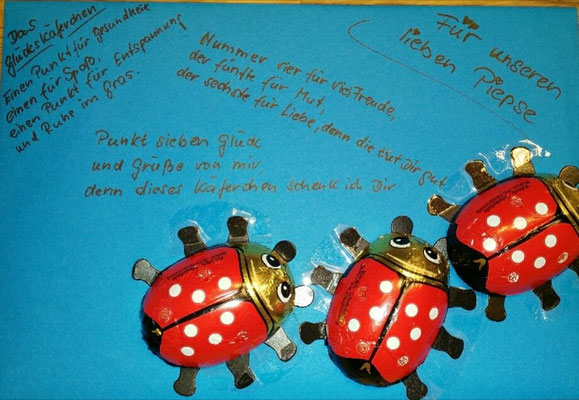 Das
Glückskäferchen
Einen Punkt für Gesundheit
einen für Spaß,
einen Punkt für Entspannung
und Ruhe im Gras.
Für unseren
lieben Piepse
Nummer vier für viel Freude,
der fünfte für Mut,
der sechste für Liebe, denn die tut Dir gut
Punkt sieben Glück
und Grüße von mir
denn dieses Käferchen schenk ich Dir